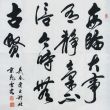 每臨大事
有靜氣不
信今時無
古賢